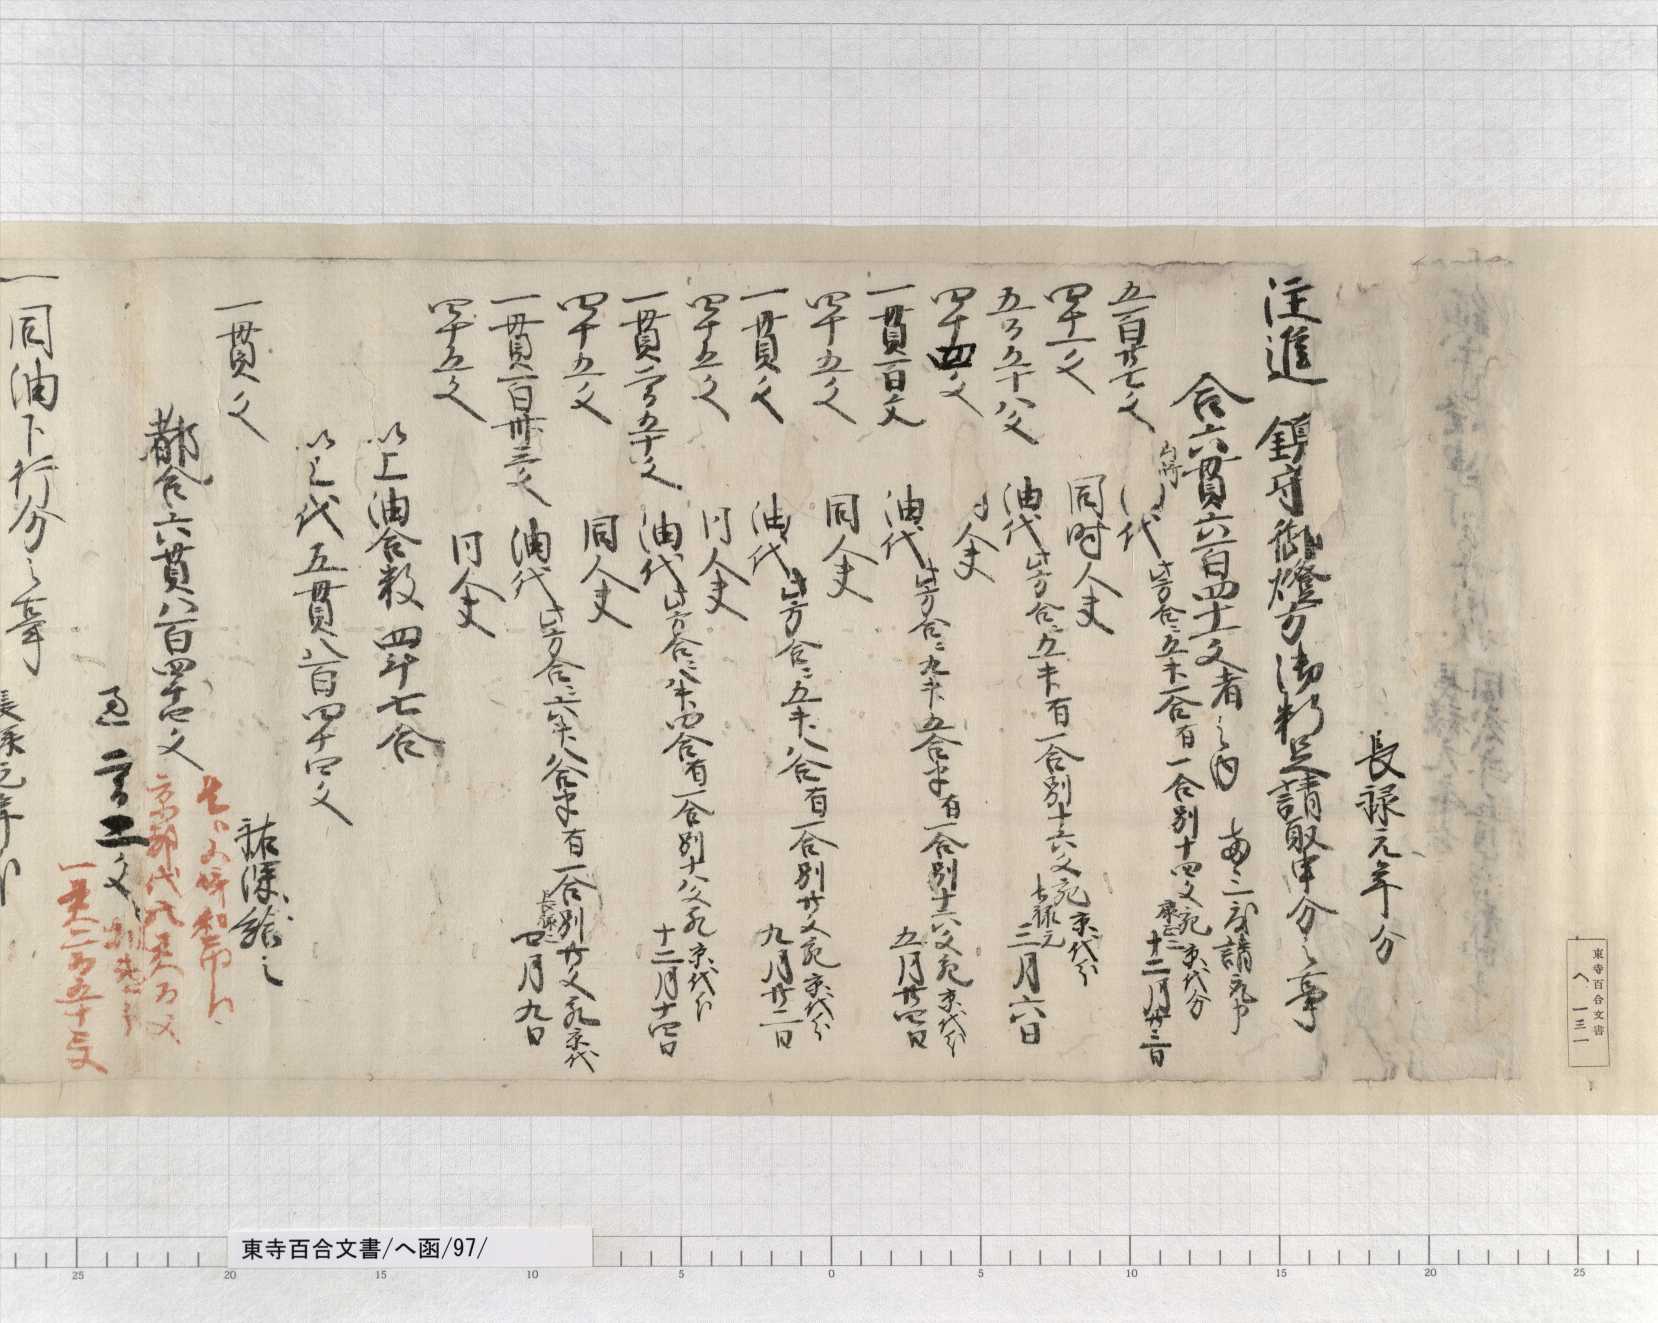 長禄元年分
注進 鎮守御燈方御料足請取申分之事
合六貫六百四十一文者之内
五百廿七文 代 此方合ニ五升一合有一合別十四文宛京代分 十二月廿三日
四十一文 同時人夫
五百五十八文 油代 此方合ニ五升有一合別十六文宛京代分 長禄元 三月六日
四十四文 人夫
一貫百文 油代 此方合ニ九升五合半有一合別十六文宛京代分 五月廿四日
四十五文 同人夫
一貫文 油代 此方合ニ五升八合有一合別廿文宛京代分 九月廿二日
四十五文 同人夫
一貫二百五十文 油代 此方合ニ八升四合有一合別十八文宛京代分 十二月十四日
四十五文 同人夫
一貫百卅三文 油代 此方合ニ六升八合半有一合別廿文宛京代 長禄二 四月九日
四十五文 同人夫
以上油合数四斗七合
以上代五貫八百四十四文
一貫文 祐深給之
都合六貫八百四十四文
過 二百二文
一貫二百五十文
一同油下行分之事 長禄元年分
東寺百合文書
へ 一三一
東寺百合文書/へ函/97/
25 20 15 10 5 0 5 10 15 20 25